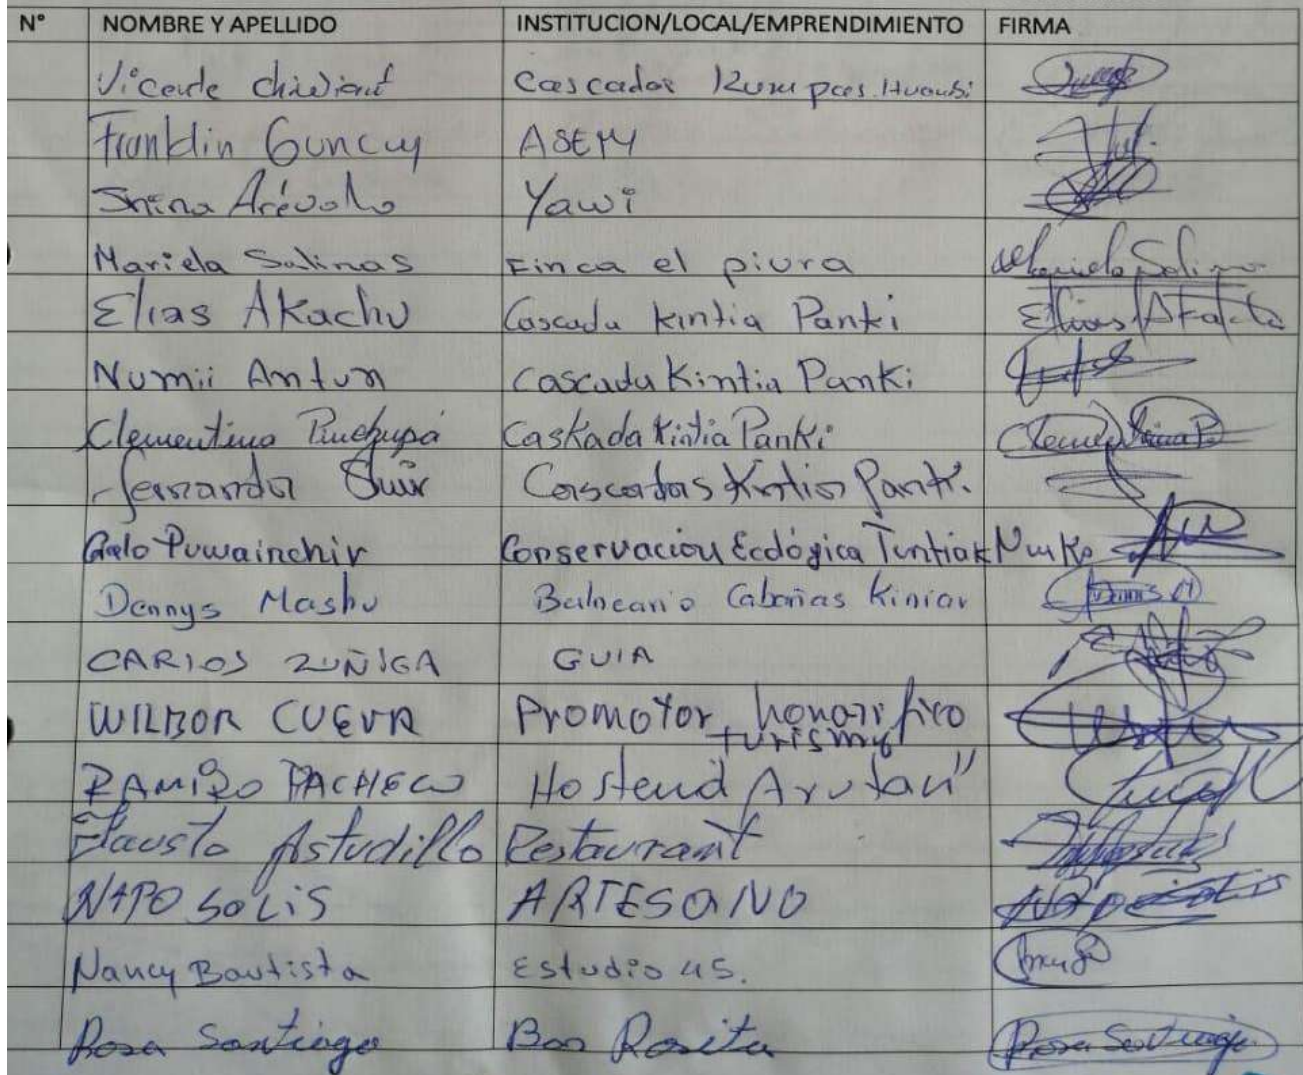 N° NOMBRE Y APELLIDO INSTITUCION/LOCAL/EMPRENDIMIENTO FIRMA
Vicente Chiriant Cascadas
Franklin Guncay ASEM
Shina Arévalo Yawi
Mariela Salinas Finca el piura Mariela Salinas
Elias Akachu Cascada Kintia Panki Elias Akachu
Numii Antun Cascada Kintia Panki
Clementina Pinchupá Caskada Kintia Panki Clementina P.
Fernando Cascadas Kintia Panki.
Galo Puwainchir Conservación Ecológica Tuntiak Nunka
Dennys Mashu Balneario Cabañas Kiniar Dennis M
CARLOS ZUÑIGA GUIA
WILBOR CUEVA Promotor honorifico
turismo
RAMIRO PACHECO Hosteria Arutam"
Fausto Astudillo Restaurant
NAPO SOLIS ARTESANO Napo Solis
Nancy Bautista Estudio 45.
Rosa Santiago Bar Rosita Rosa Santiago